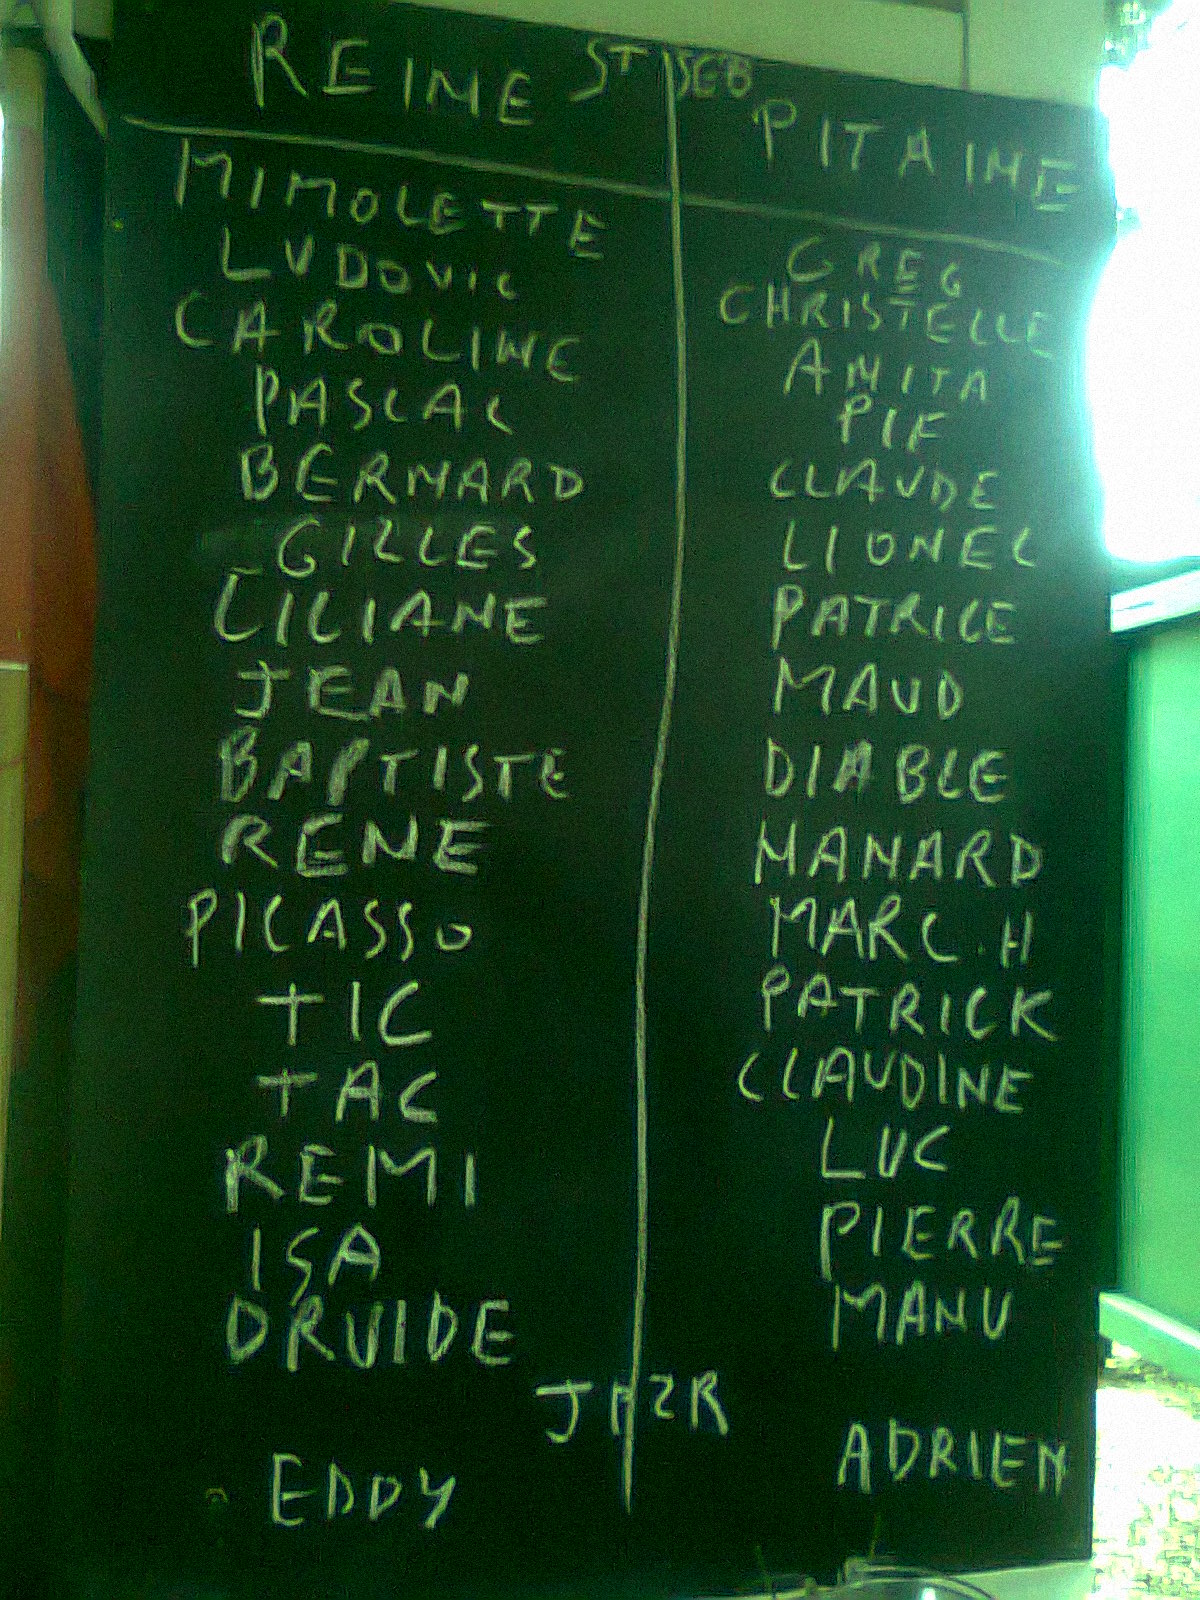 REINE
ST SEB
PITAINE
MIMOLETTE
LUDOVIC
CAROLINE
PASCAL
BERNARD
GILLES
LILIANE
JEAN
BAPTISTE
RENE
PICASSO
TIC
TAC
REMI
ISA
DRUIDE
EDDY
GREG
CHRISTELLE
ANITA
PIF
CLAUDE
LIONEL
PATRICE
MAUD
DIABLE
MANARD
MARC.H
PATRICK
CLAUDINE
LUC
PIERRE
MANU
ADRIEN